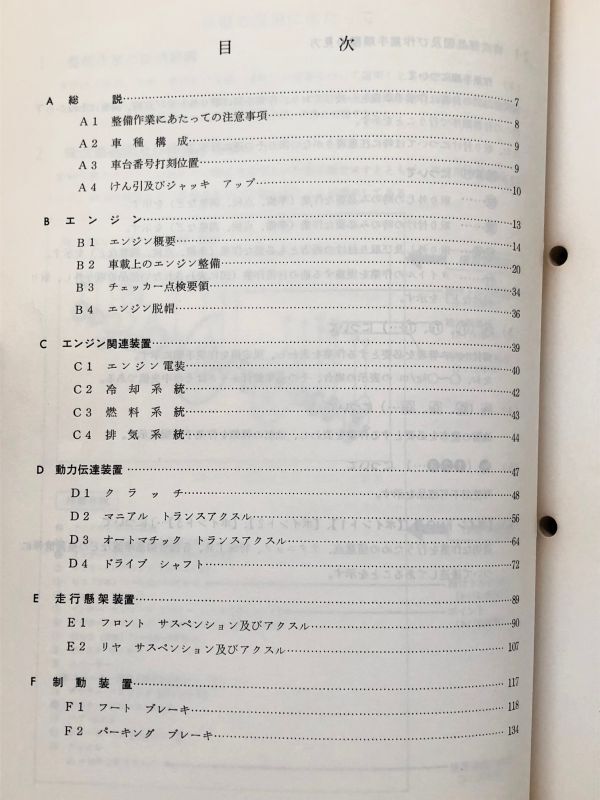 目 次
A 総 説 7
A1 整備作業にあたっての注意事項 8
A2 車種構成 9
A3 車台番号打刻位置 9
A4 けん引及びジャッキ アップ 10
B エンジン 13
B1 エンジン概要 14
B2 車載上のエンジン整備 20
B3 チェッカー点検要領 34
B4 エンジン脱帽 36
C エンジン関連装置 39
C1 エンジン電装 40
C2 冷却系統 42
C3 燃料系統 43
C4 排気系統 44
D 動力伝達装置 47
D1 クラッチ 48
D2 マニアル トランスアクスル 56
D3 オートマチック トランスアクスル 64
D4 ドライブ シャフト 72
E 走行懸架装置 89
E1 フロント サスペンション及びアクスル 90
E2 リヤ サスペンション及びアクスル 107
F 制動装置 117
F1 フート ブレーキ 118
F2 パーキング ブレーキ 134